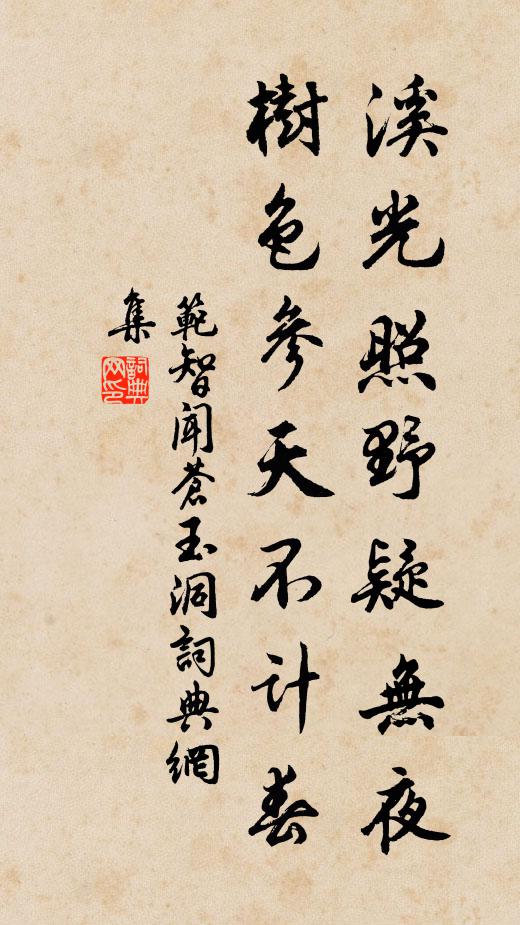 溪光照野疑無夜
樹色參天不計春
範智聞蒼玉洞詞典網
集
詞典
网印